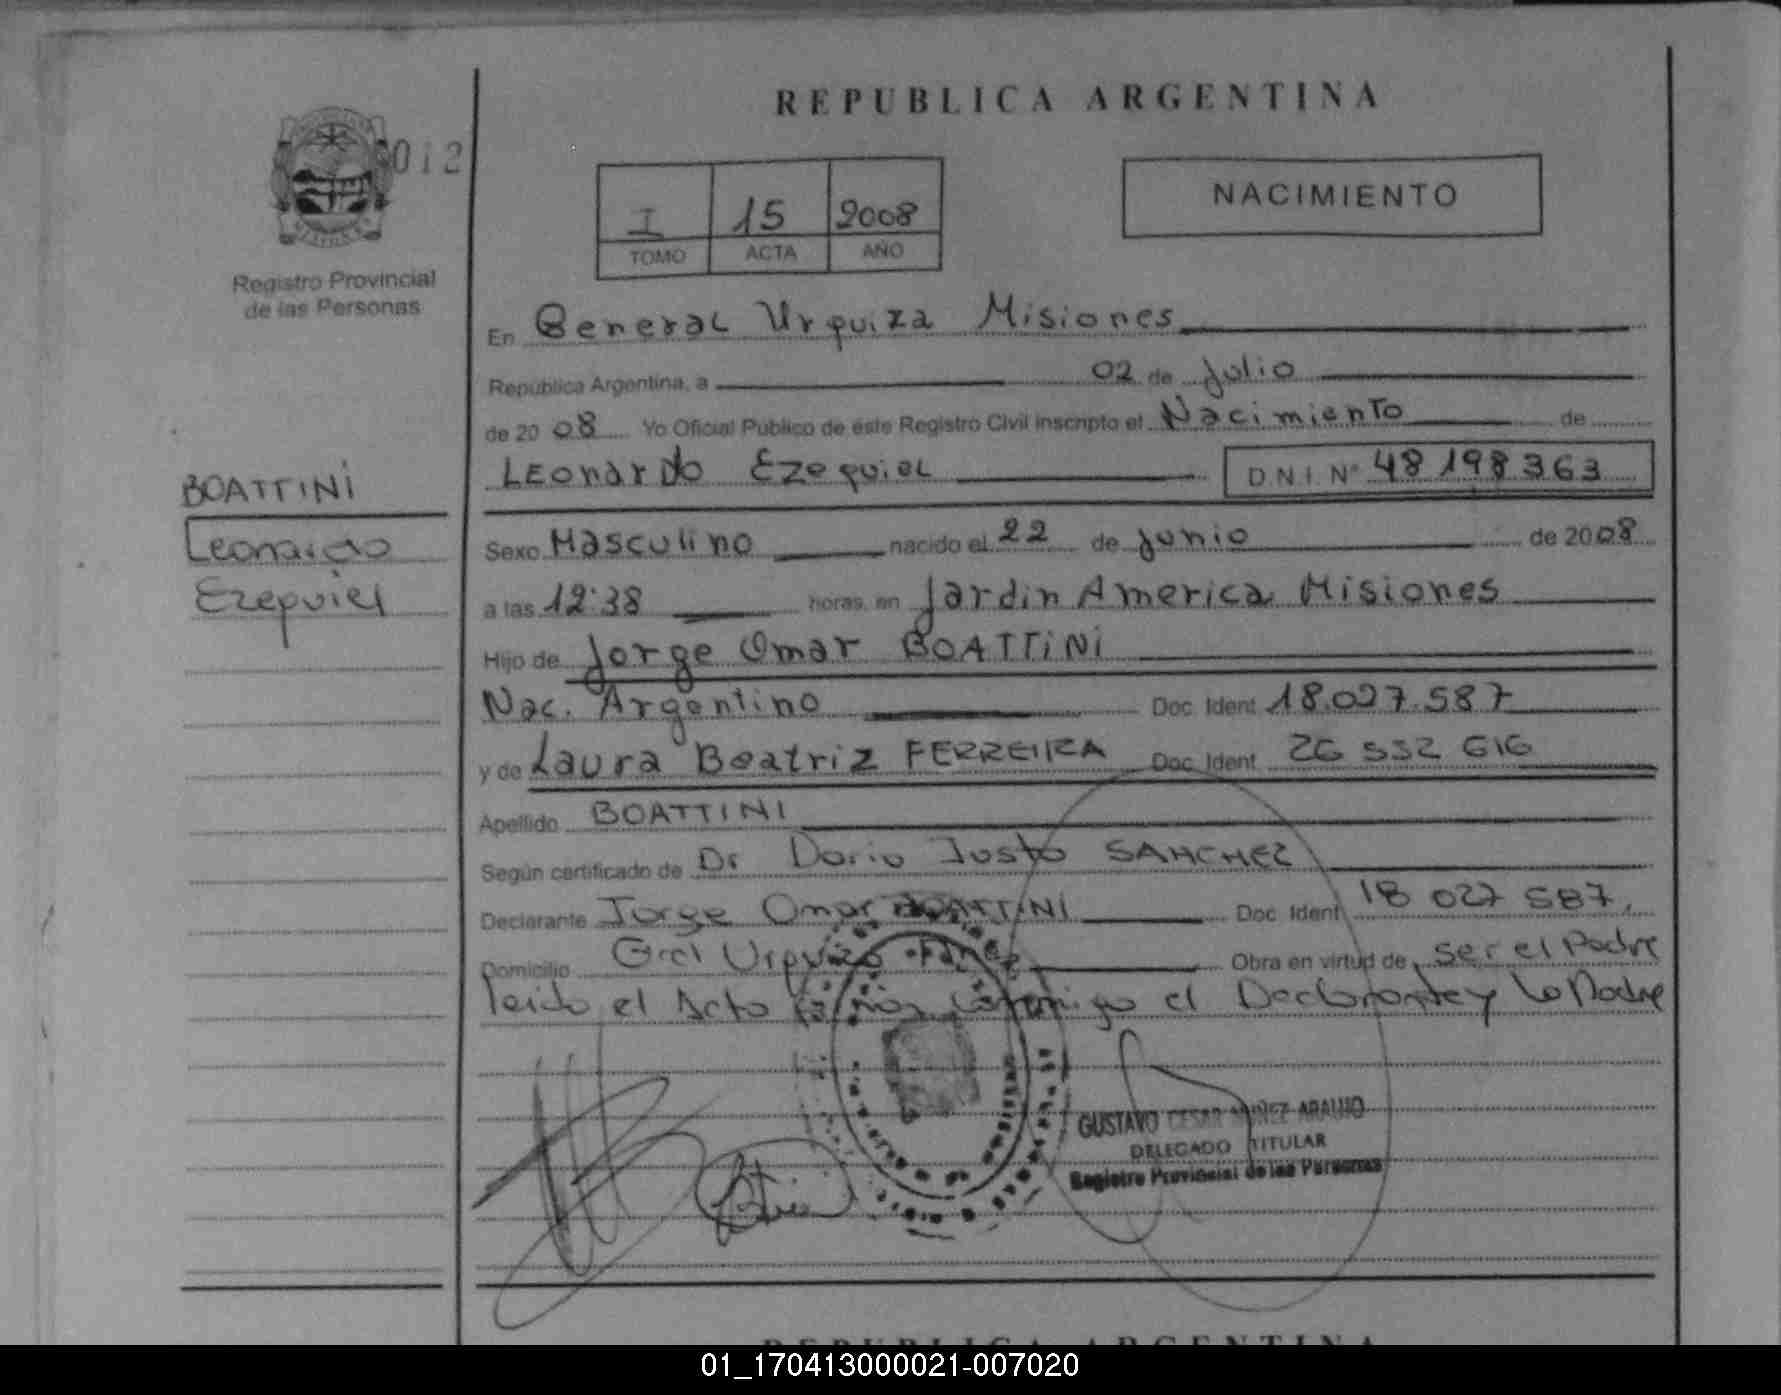 REPUBLICA ARGENTINA
012
I 15 2008
TOMO ACTA AÑO
NACIMIENTO
Registro Provincial
de las Personas
En General Urquiza Misiones
República Argentina, a 02 de Julio
de 20 08 Yo Oficial Público de éste Registro Civil inscripto el Nacimiento de
Leonardo Ezequiel D.N.I. Nº 48198363
BOATTINI
Leonardo
Ezequiel
Sexo Masculino nacido el 22 de Junio de 2008
a las 12:38 horas, en Jardin America Misiones
Hijo de Jorge Omar BOATTINI
Nac. Argentino Doc. Ident 18.027.587
y de Laura Beatriz FERREIRA Doc. Ident 26 552 616
Apellido BOATTINI
Según certificado de Dr Dario Justo SANCHEZ
Declarante Jorge Omar BOATTINI Doc. Ident 18 027 587,
Domicilio Gral Urquiza Obra en virtud de ser el Padre
leido el Acta el Declarante y la Madre
GUSTAVO CESAR NUÑEZ ARAUJO
DELEGADO TITULAR
Registro Provincial de las Personas
REPUBLICA ARGENTINA
01_170413000021-007020